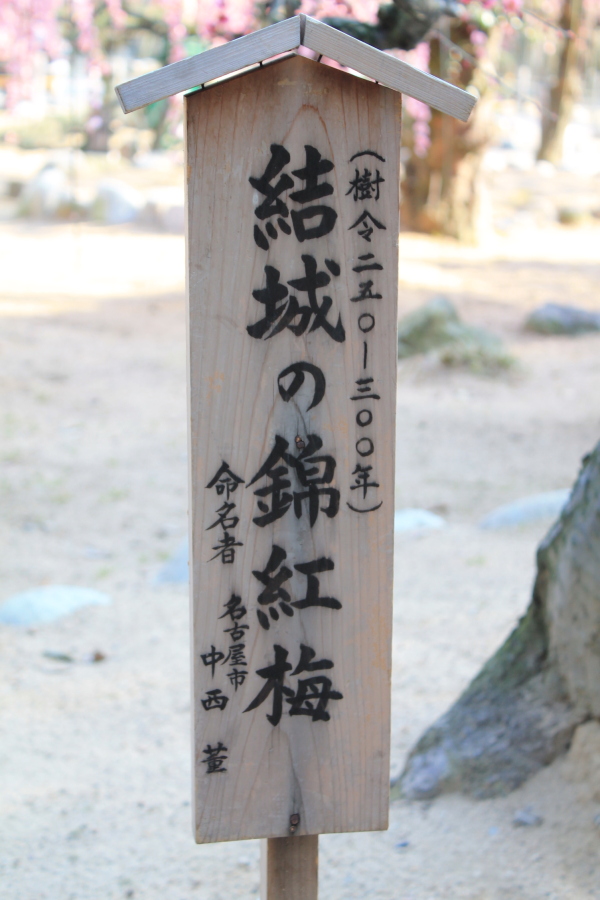 (樹令二五〇ー三〇〇年)
結城の錦紅梅
命名者
名古屋市
中西 董